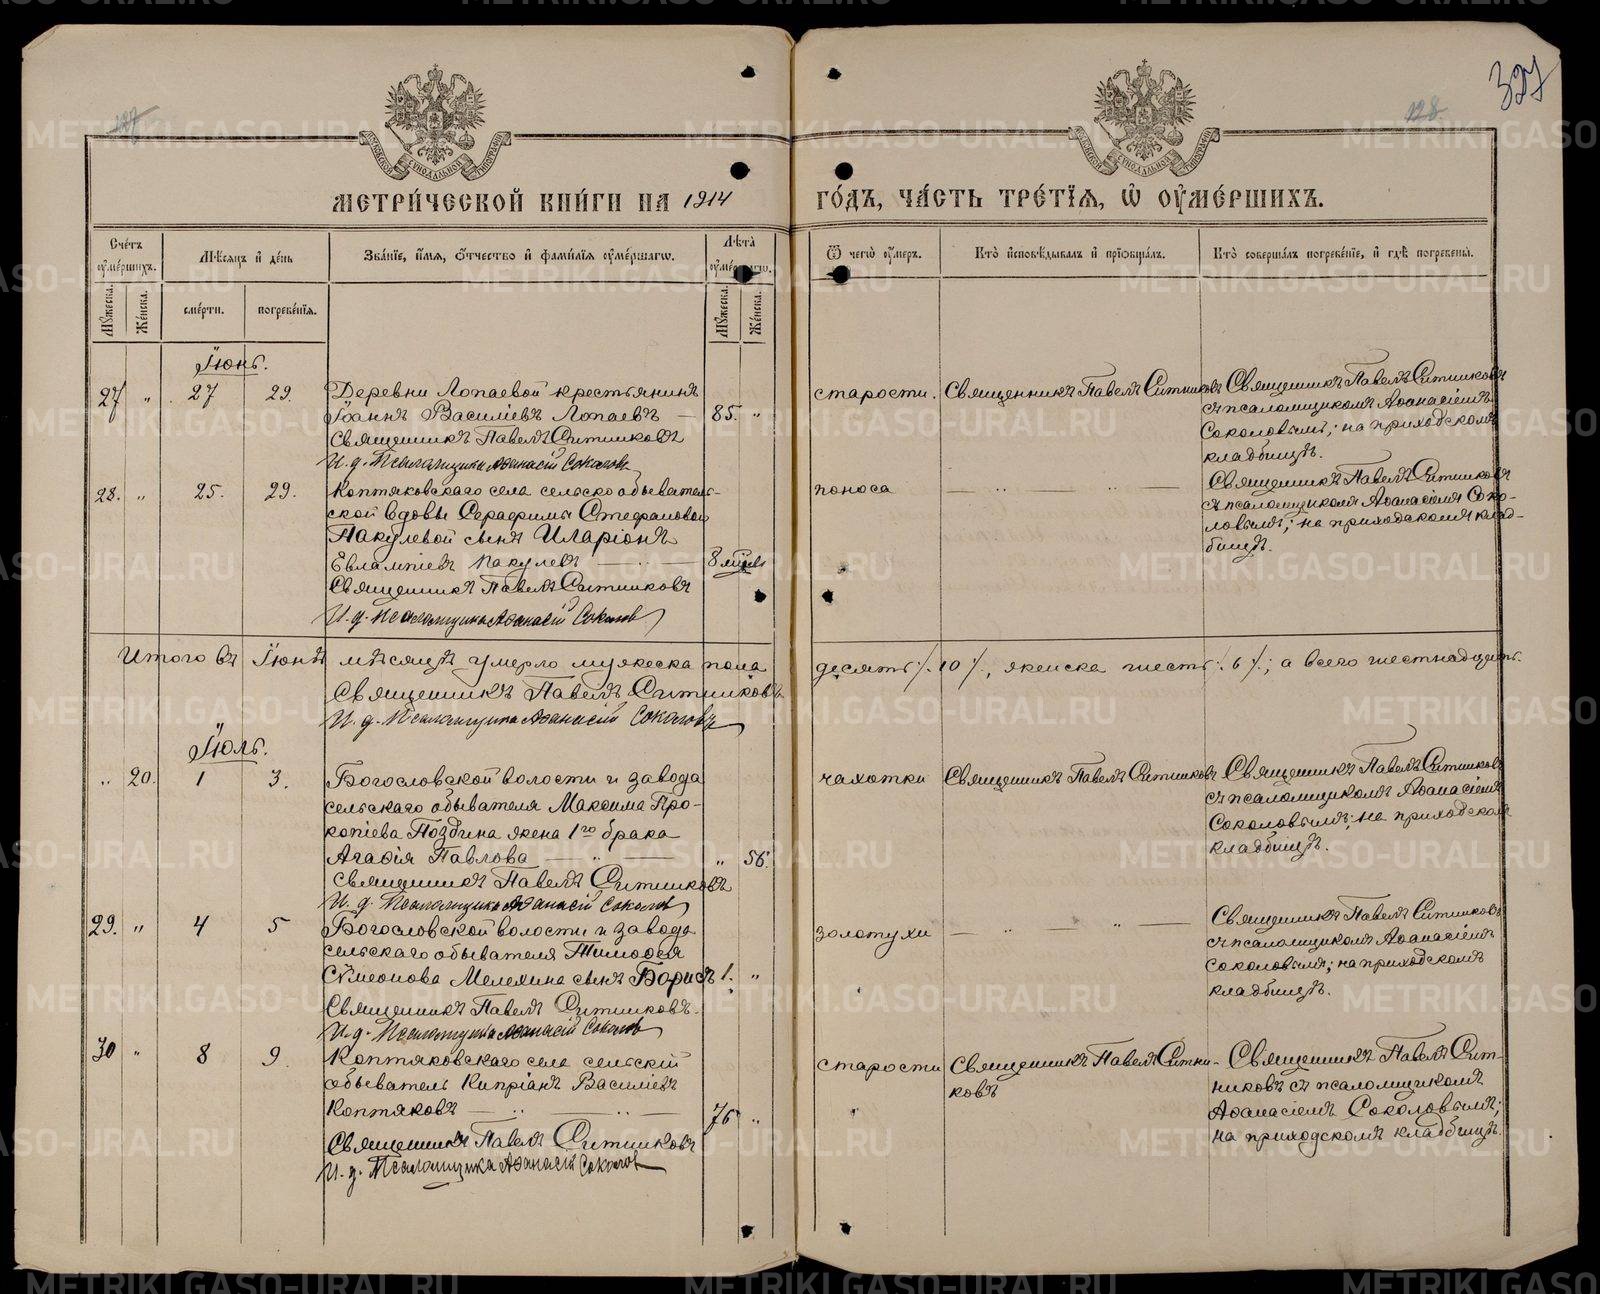 127
128
327
МЕТРИ́ЧЕСКОЙ КНИ́ГИ НА 1914 ГО́ДЪ, ЧА́СТЬ ТРЕ́ТІЯ, Ѿ ОУ҆МЕ́РШИХЪ.
Сче́тъ оу҆ме́ршихъ.
Мѣ́сяцъ и҆ де́нь
Зва́ніе, и҆́мя, ѻ҆́тчество и҆ фами́лія оу҆ме́ршагѡ.
Лѣ́та оу҆ме́ршагѡ.
Ѿ чегѡ̀ оу҆́меръ.
Кто̀ и҆сповѣ́дывалъ и҆ прїѡбща́лъ.
Кто̀ соверша́лъ погребе́ніе, и҆ гдѣ̀ погребены̀.
Му́жеска.
Же́нска.
сме́рти.
погребе́нія.
Му́жеска.
Же́нска.
Іюнь.
27 " 27 29. Деревни Лопаевой крестьянинъ
Іоаннъ Василіевъ Лопаевъ — 85. "
Священникъ Павелъ Ситниковъ
И. д. Псаломщика Аѳанасій Соколовъ
старости. Священникъ Павелъ Ситниковъ
Священникъ Павелъ Ситниковъ
съ псаломщикомъ Аѳанасіемъ
Соколовымъ; на приходскомъ
кладбищѣ.
28. " 25. 29. Коптяковскаго села сельско обыватель-
ской вдовы Серафимы Стефановой
Пакулевой сынъ Иларіонъ
Евлампіевъ Пакулевъ — " — 8 мѣсяцевъ
Священникъ Павелъ Ситниковъ
И. д. Псаломщика Аѳанасій Соколовъ
поноса — " — " —
Священникъ Павелъ Ситниковъ
съ псаломщикомъ Аѳанасіемъ Соко-
ловымъ; на приходскомъ клад-
бищѣ.
Итого въ Іюнѣ мѣсяцѣ умерло мужеска пола десять ./. 10 ./., женска шесть ./. 6 ./.; а всего шестнадцать.
Священникъ Павелъ Ситниковъ
И. д. Псаломщика Аѳанасій Соколовъ
Іюль.
" 20. 1 3. Богословской волости и завода
сельскаго обывателя Максима Про-
копіева Поздина жена 1го брака
Агаѳія Павлова — " — " 56.
Священникъ Павелъ Ситниковъ
И. д. Псаломщика Аѳанасій Соколовъ
чахотки Священникъ Павелъ Ситниковъ
Священникъ Павелъ Ситниковъ
съ псаломщикомъ Аѳанасіемъ
Соколовымъ; на приходскомъ
кладбищѣ.
29. " 4 5 Богословской волости и завода
сельскаго обывателя Тимоѳея
Сѵмеонова Мелехина сынъ Борисъ 1. "
Священникъ Павелъ Ситниковъ.
И. д. Псаломщика Аѳанасій Соколовъ
золотухи — " — " —
Священникъ Павелъ Ситниковъ
съ псаломщикомъ Аѳанасіемъ
Соколовымъ; на приходскомъ
кладбищѣ.
30 " 8 9. Коптяковскаго села сельскій
обыватель Кипріанъ Василіевъ
Коптяковъ — " — " — 76 "
Священникъ Павелъ Ситниковъ
И. д. Псаломщика Аѳанасій Соколовъ
старости Священникъ Павелъ Ситни-
ковъ
Священникъ Павелъ Сит-
никовъ съ псаломщикомъ
Аѳанасіемъ Соколовымъ;
на приходскомъ кладбищѣ.
METRIKI.GASO-URAL.RU